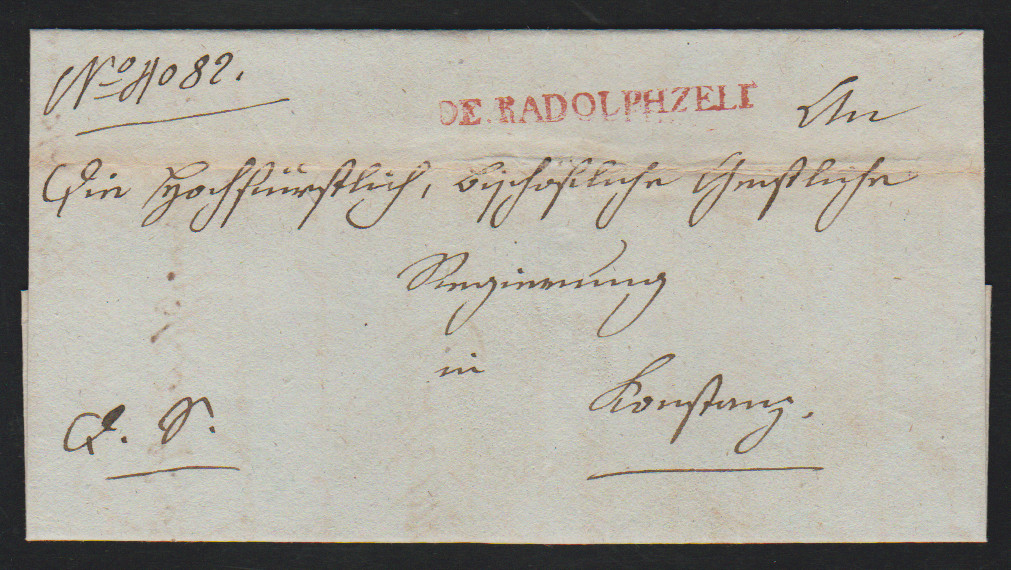 No 4082.
DE.RADOLPHZELL
An
Die Hochfürstlich, bischöfliche Geistliche
Regierung
in
Konstanz.
D. S.